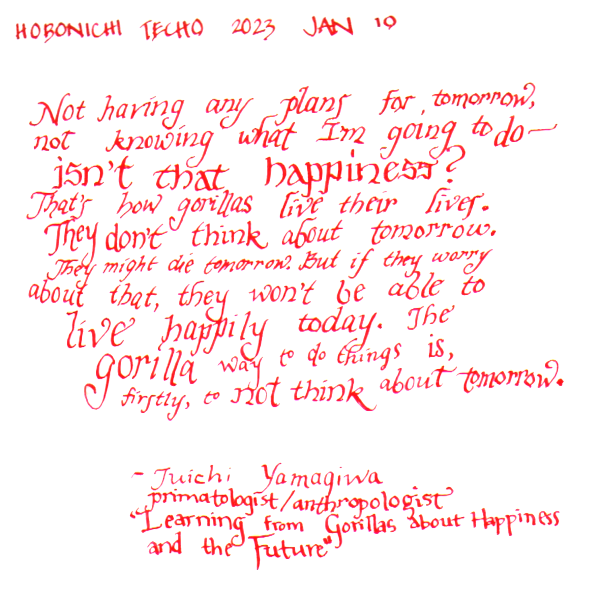 HOBONICHI TECHO 2023 JAN 10
Not having any plans for tomorrow,
not knowing what I'm going to do—
isn't that happiness?
That's how gorillas live their lives.
They don't think about tomorrow.
They might die tomorrow. But if they worry
about that, they won't be able to
live happily today. The
gorilla way to do things is,
firstly, to not think about tomorrow.
- Juichi Yamagiwa
primatologist/anthropologist
"Learning from Gorillas about Happiness
and the Future"